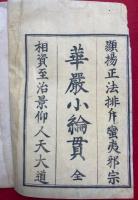 顯揚正法排斥蠻夷邪宗
華嚴小綸貫 全
相資至治景仰人天大道